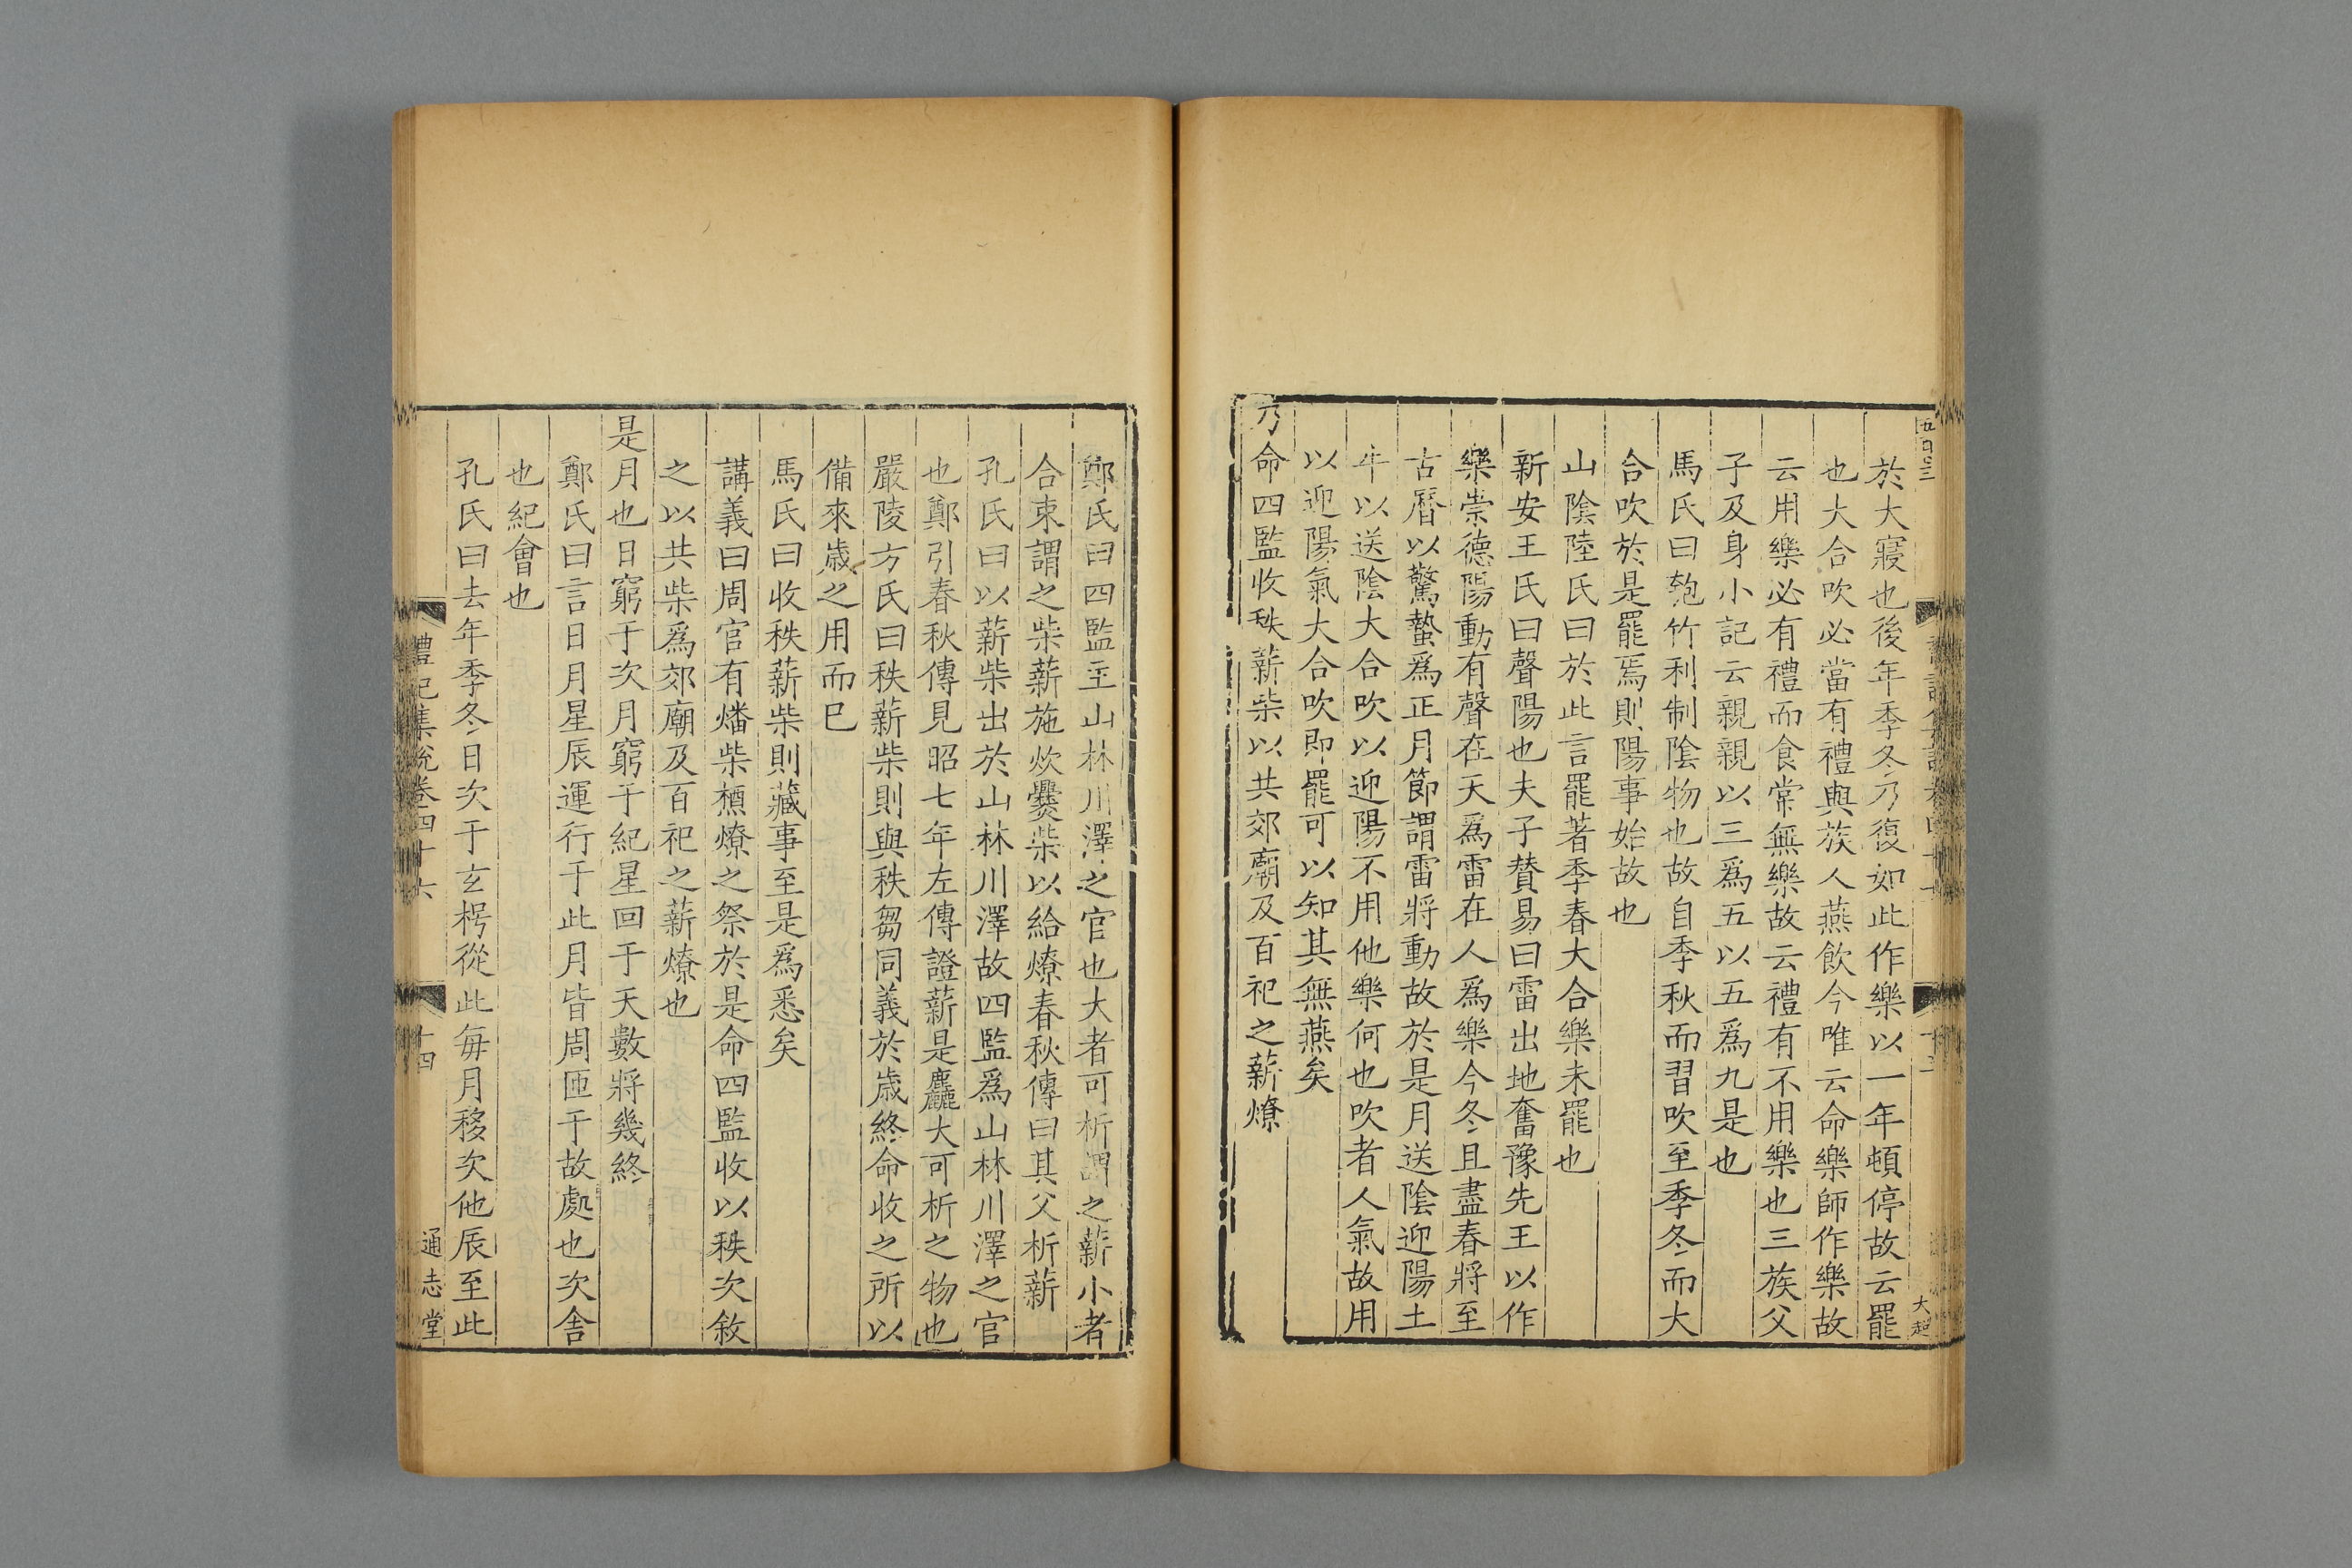 於大寢也後年季冬乃復如此作樂以一年頓停故云罷
也大合吹必當有禮與族人燕飲今唯云命樂師作樂故
云用樂必有禮而食常無樂故云禮有不用樂也三族父
子及身小記云親親以三爲五以五爲九是也
馬氏曰匏竹利制陰物也故自季秋而習吹至季冬而大
合吹於是罷焉則陽事始故也
山陰陸氏曰於此言罷著季春大合樂未罷也
新安王氏曰聲陽也夫子賛易曰雷出地奮豫先王以作
樂崇德陽動有聲在天爲雷在人爲樂今冬且盡春將至
古曆以驚蟄爲正月節謂雷將動故於是月送陰迎陽土
牛以送陰大合吹以迎陽不用他樂何也吹者人氣故用
以迎陽氣大合吹即罷可以知其無燕矣
乃命四監收秩薪柴以共郊廟及百祀之薪燎
鄭氏曰四監主山林川澤之官也大者可析謂之薪小者
合束謂之柴薪施炊爨柴以給燎春秋傳曰其父析薪
孔氏曰以薪柴出於山林川澤故四監爲山林川澤之官
也鄭引春秋傳見昭七年左傳證薪是麤大可析之物也
嚴陵方氏曰秩薪柴則與秩芻同義於歲終命收之所以
備來歲之用而已
馬氏曰收秩薪柴則藏事至是爲悉矣
講義曰周官有燔柴槱燎之祭於是命四監收以秩次敘
之以共柴爲郊廟及百祀之薪燎也
是月也日窮于次月窮于紀星回于天數將幾終
鄭氏曰言日月星辰運行于此月皆周匝于故處也次舍
也紀會也
孔氏曰去年季冬日次于玄枵從此每月移次他辰至此
禮記集說卷四十六
十四
通志堂